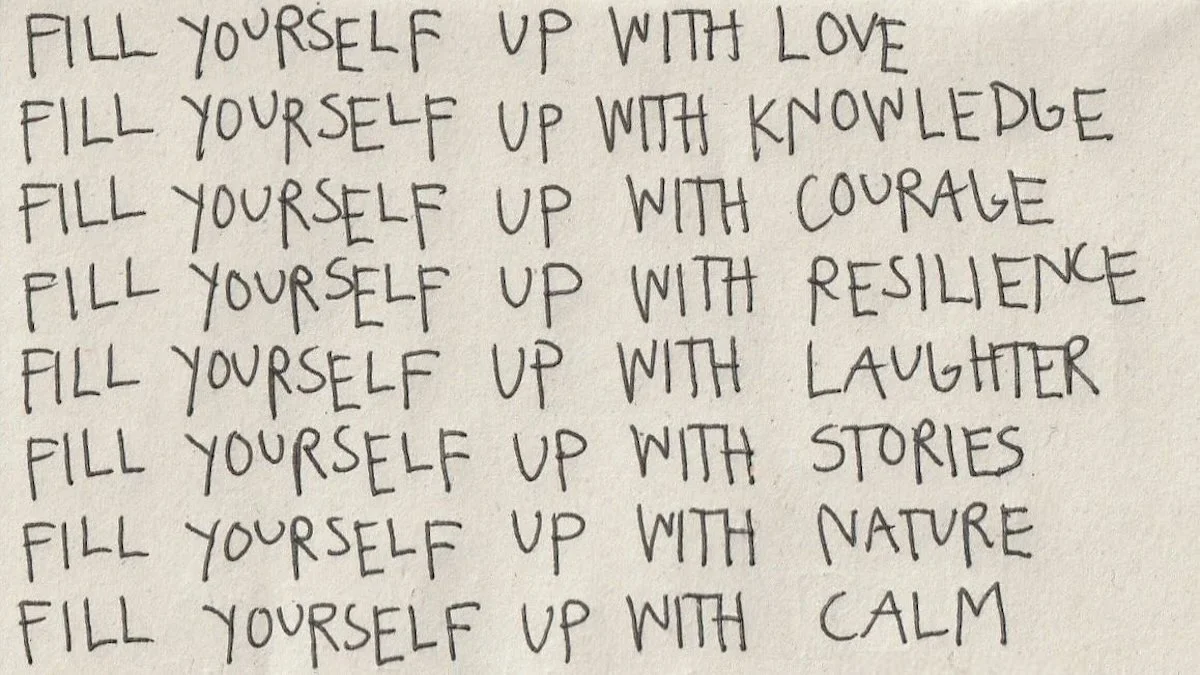 FILL YOURSELF UP WITH LOVE
FILL YOURSELF UP WITH KNOWLEDGE
FILL YOURSELF UP WITH COURAGE
FILL YOURSELF UP WITH RESILIENCE
FILL YOURSELF UP WITH LAUGHTER
FILL YOURSELF UP WITH STORIES
FILL YOURSELF UP WITH NATURE
FILL YOURSELF UP WITH CALM